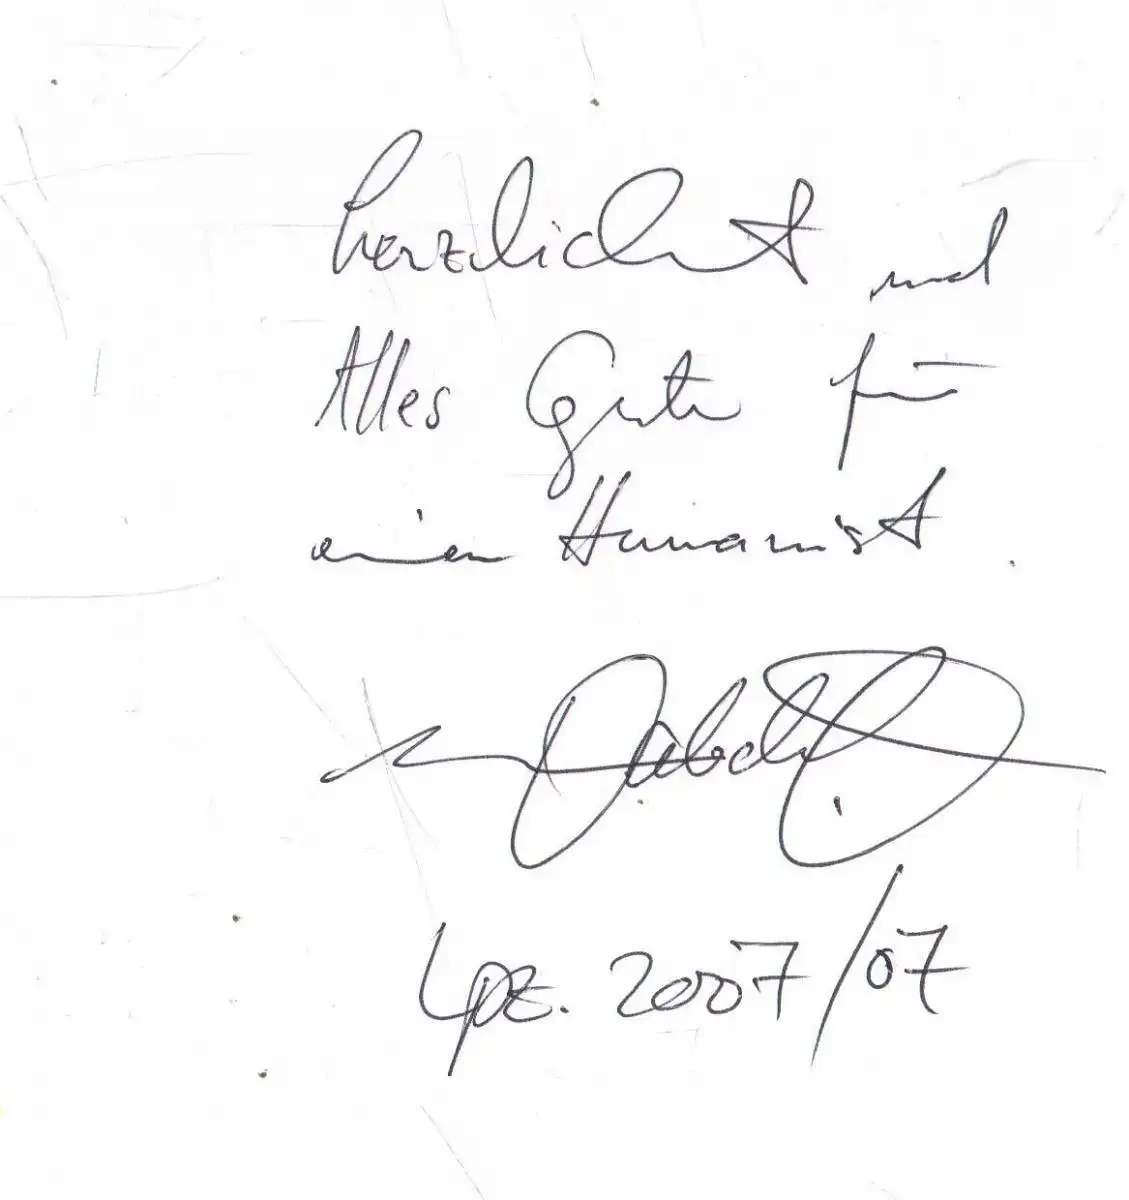 herzlichst und
Alles Gute für
einen Humanist.
Lpz. 2007/07